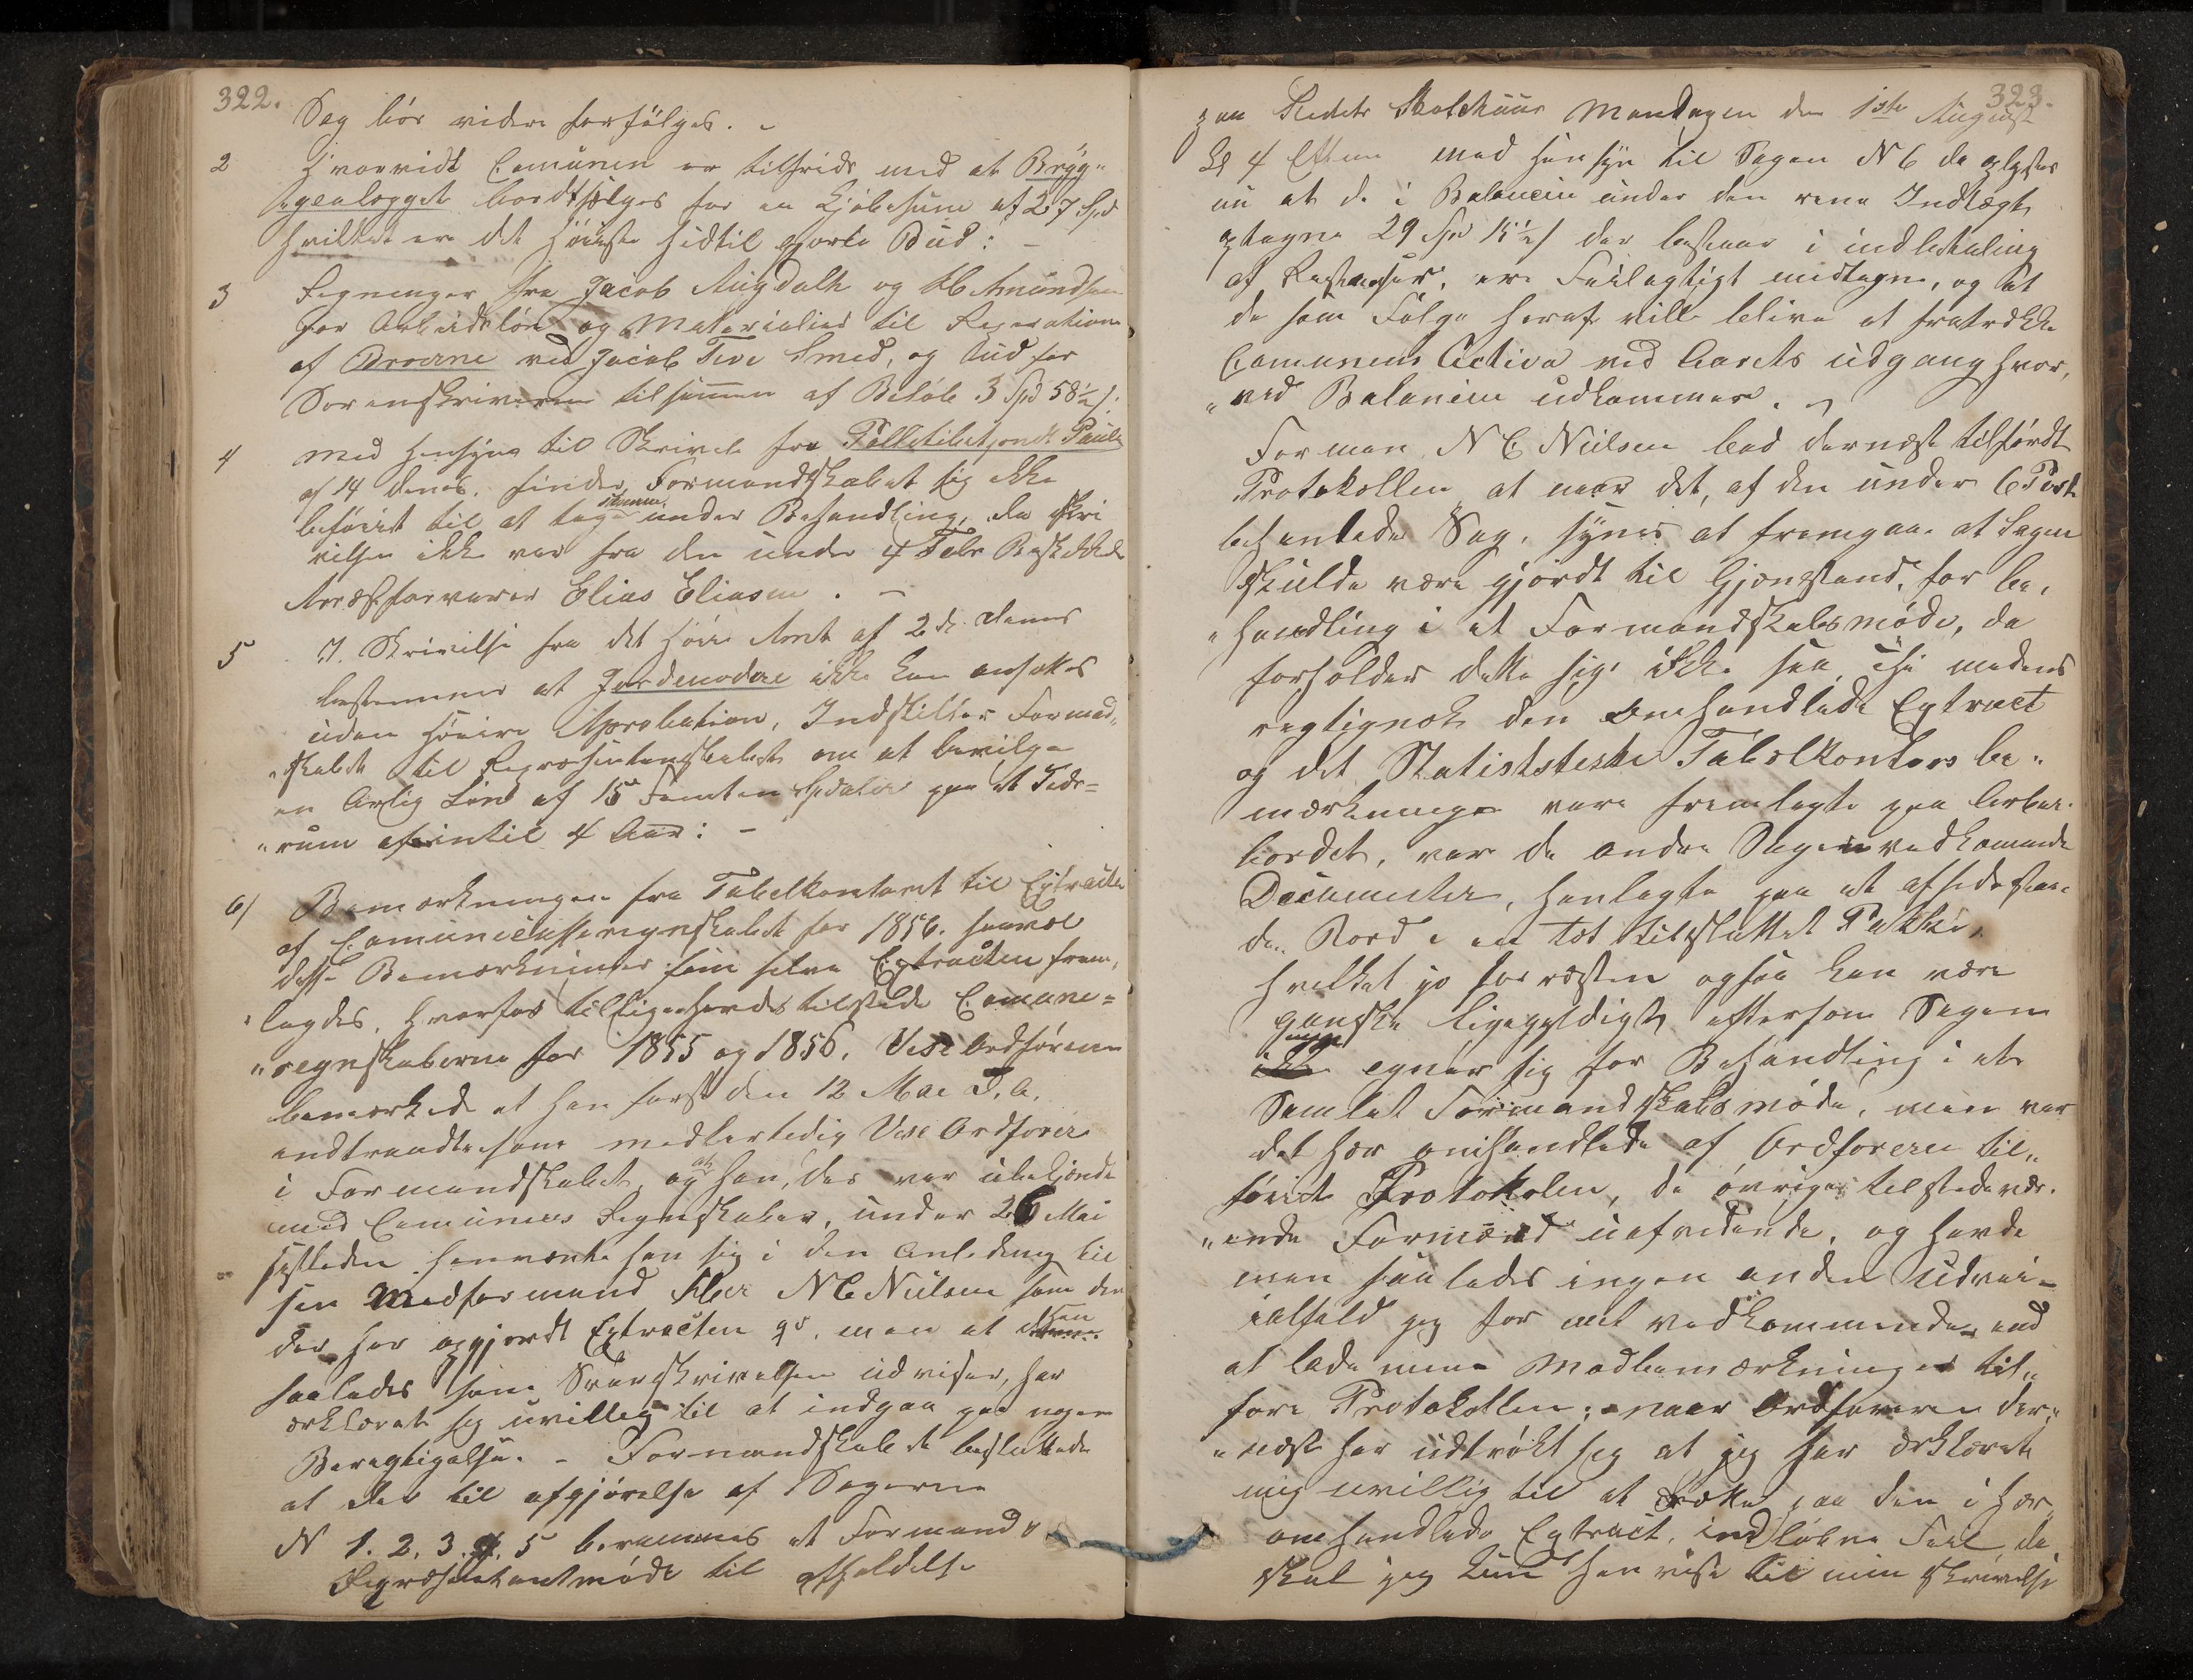 322.
Sag bör videre forfölges. -
2 Hvorvidt Comunen er tilfreds med at Bryg-
"genlogget bortsælges for en Kjöbesum af 27 Spd
hvilket er det Höieste hidtil gjorte Bud: -
3 Regninger fra Jacob Augdalh og Amundsen
for Arbeidslön og Materialier til Reparation
af Broerne ved Jacob Smed, og Bud for
Sorenskriveren tilsamen af Belöb 3 Spd 58½ s.
4 med Hensyn til Skrivelse fra
af 14 denes, finder Formandskabet sig ikke
beföiet til at tage samme under Behandling, da Skri
velsen ikke var fra den under 4 Febr Beskikkede
Arrestforvarer Elias Eliasen. -
5 I Skrivelse fra det Höie Amt af 2de denes
bestemmes at Jordemodere ikke kan ansættes
uden Höiere Aprobation, Indstiller Formand-
"skabet til Repræsentanskabet om at bevilge
en Aarlig Lön af 15 Femten Spdaler paa et Tids=
"rum af intil 4 Aar: -
6/ Bemærkninger fra Tabelkontoret til Extracten
af Comunicasseregnskabet for 1856. saavel
disse Bemærkninger som selve Extracten frem-
"lagdes, hvorfor tillige havdes tilstede Comune=
"regnskaberne for 1855 og 1856. Vise Ordföreren
bemærkede at han först den 12 Mai D. A.
indtraadte som midlertidig Vise Ordförer
i Formandskabet, og at han, der var ubekjendt
med Comunens Regnskaber, under 26 Mai
sistleden henvendte han sig i den Anledning til
sin Medformand Herr N C Nielsen som den
der har opgjordt Extracten men at han
saaledes som Svarskrivelsen udviser, har
erklæret sig uvillig til at indgaa paa nogen
Beregtigelse. - Formandskabet besluttede
at der til afgjörelse af Sagerne
N 1. 2. 3. 4. 5 berammes et Formands
Repræsentantmöde til afholdelse
323.
paa Stedets Skolehuus Mandagen den 1ste August
Kl 4 Efterm med Hensyn til Sagen N 6 da oplystes
nu at de i Balancen under den rene Indtægt
optagne 29 Spd 15½ s der bestaar i indbetaling
af Restanser, ere Feilagtigt medtagne, og at
de som Fölge heraf vill blive at fratrække
Comunens Activa ved Aarets udgang hvor-
"ved Balancen udkommer.
Forman N C Nielsen bad dernæst tilfördt
Protokollen at naar det, af den under 6 Post
behanlede Sag, synes at fremgaae at Sagen
skulde være gjordt til Gjenstand for be-
"handling i et Formandskabsmöde, da
forholder dette sig ikke saa, thi medens
regtignok den omhandlede Extract
og det Statistteske Tabelkontors be-
mærkninger vare fremlagte paa Arbei-
bordet, var de andre Sagen vedkommende
Documenter, henlagte paa et afsidestaa-
de Bord i en tæt tilsluttet Pakke,
hvilket jo forresten ogsaa kan være
ganske ligegyldigt, eftersom Sagen
egner sig for Behandling i et
Samlet Formandskabsmöde, men var
det her omhandlede af Ordföreren til-
föiet Protokolen, de övriges tilstedevær-
"ende Formænd uafvidende, og havde
man saaledes ingen anden Udvei -
ialfald jeg for mit vedkommende end
at lade mine Modbemærkninger til-
före Protokollen; naar Ordföreren der-
"næst har udtrökt sig at jeg har erklæret
mig uvillig til at rætte paa den i her
omhandlede Extract, indlöbne Feil da
skal jeg kun henvise til min Skrivelse